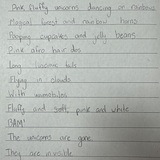 Pink fluffy unicorns dancing on rainbows
Magical and rainbow horns
Pooping cupcakes and jelly beans
Pink afro hair dos
Long luscious tails
Flying in clouds
With marshmallows
Fluffy and soft pink and white
BAM!
The unicorns are gone
They are invisible